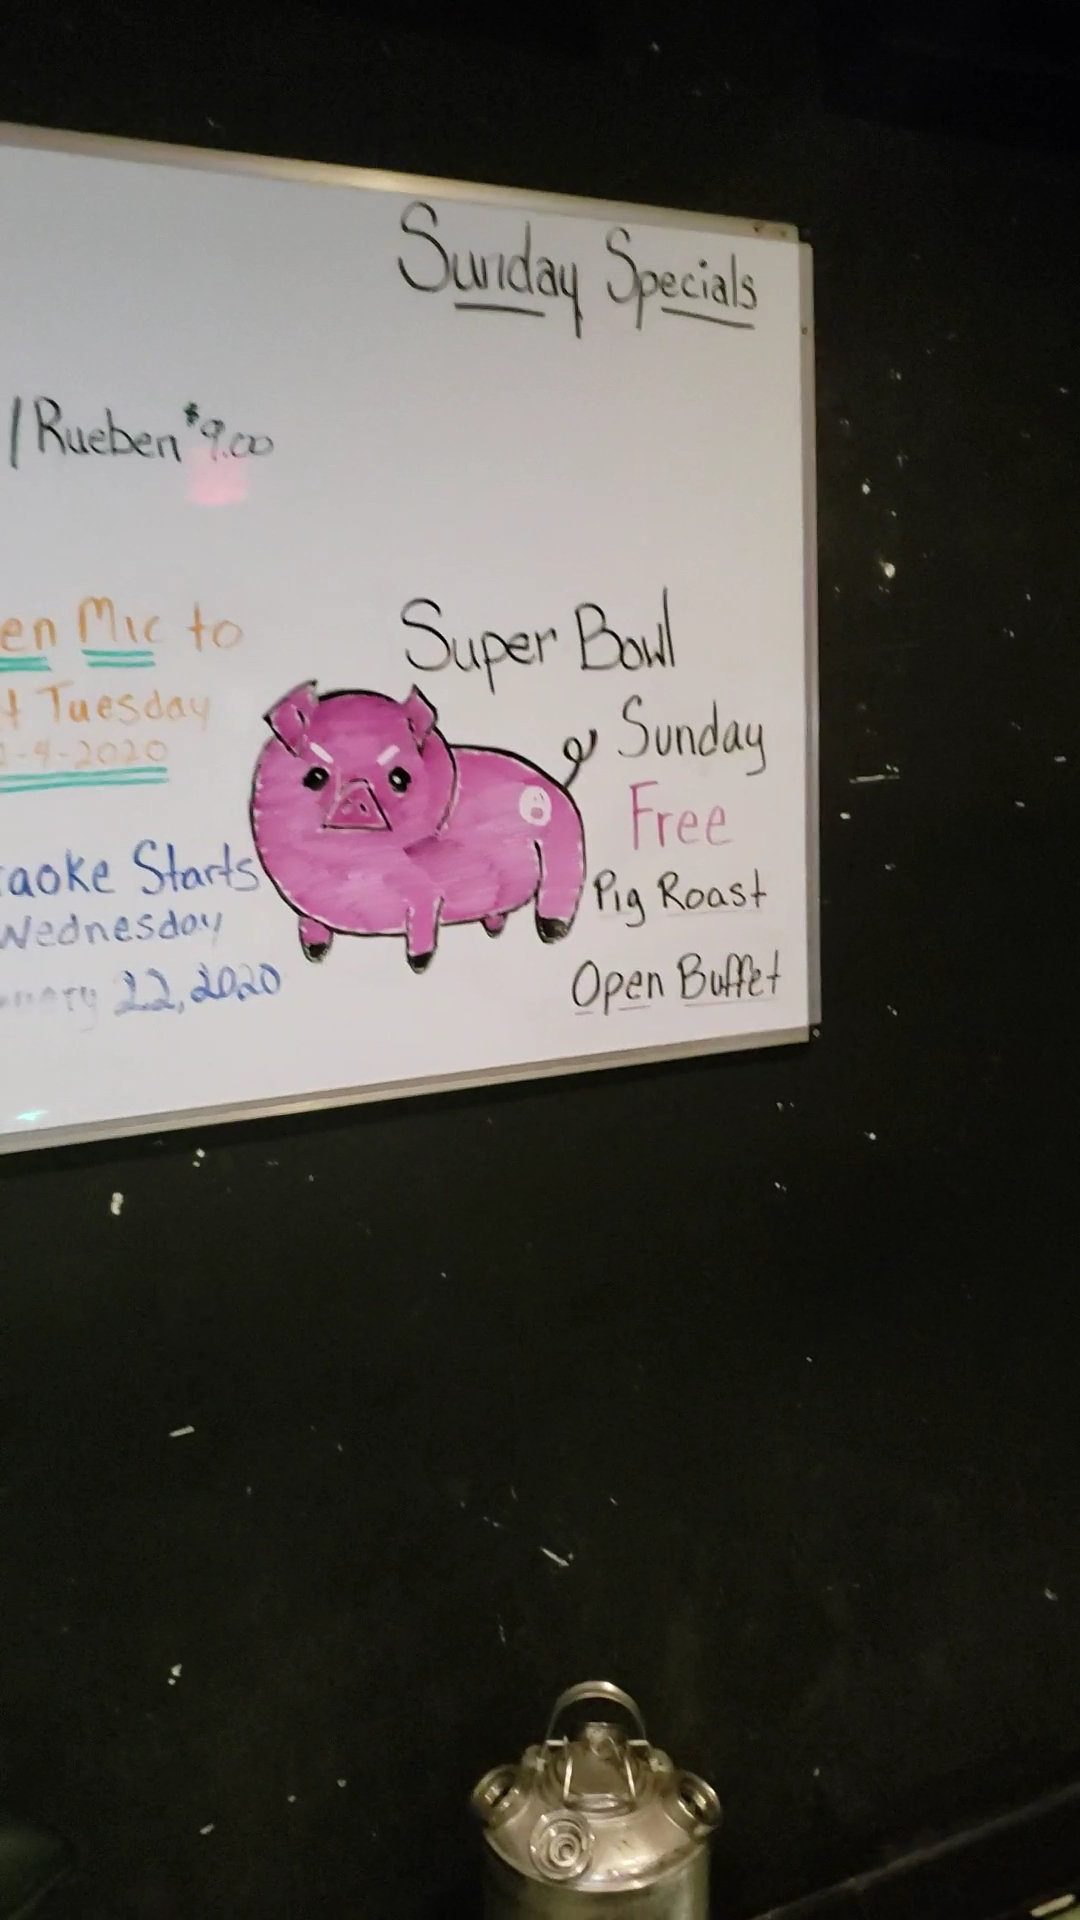 Sunday Specials
/Rueben $9.00
en Mic to
t Tuesday
2-4-2020
Super Bowl
Sunday
Free
Pig Roast
Open Buffet
aoke Starts
Wednesday
22, 2020